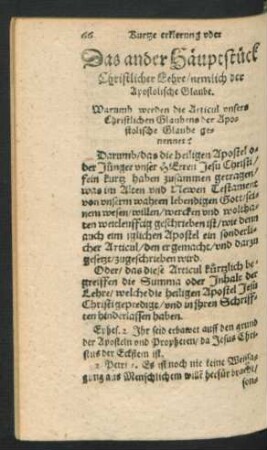 66 Kurtze erklerung vber
Das ander Häuptstück
Christlicher Lehre / nemlich der
Apostolische Glaube.
Warumb werden die Articul vnsers
Christlichen Glaubens der Apo-
stolische Glaube ge-
nennet?
Darumb / das die heiligen Apostel o-
der Jünger vnser HErren Jesu Christi /
fein kurtz haben zusammen getragen /
was im Alten vnd Newen Testament
von vnserm wahren lebendigen Gott / sei-
nem wesen / willen / wercken vnd woltha-
ten weitleufftig geschrieben ist / wie denn
auch ein jglichen Apostel ein sonderli-
cher Articul / den er gemacht / vnd darzu
gesetzt / zugeschrieben wird.
Oder / das diese Articul kürtzlich be-
greiffen die Summa oder Inhalt der
Lehre / welche die heiligen Apostel Jesu
Christi geprediget / vnd in jhren Schriff-
ten hinderlassen haben.
Ephes. 2. Ihr seid erbawet auff den grund
der Aposteln vnd Propheten / da Jesus Chri-
stus der Eckstein ist.
2. Petri 1. Es ist noch nie keine Weissa-
gung aus Menschlichem will[e] herfür bracht /
sons